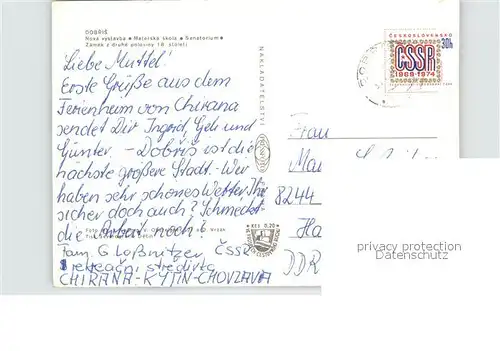 DOBŘÍŠ
Nová výstavba • Mateřská škola • Sanatorium •
Zámek z druhé poloviny 18. století
Liebe Muttel!
Erste Grüße aus dem
Ferienheim von Chirana
sendet Dir Ingrid, Geli und
Günter. - Dobříš ist die
nächste größere Stadt. - Wir
haben sehr schönes Wetter, Ihr
sicher doch auch? Schmeckt
die Arbeit noch?
Fam. G Loßnitzer, ČSSR
rekreační středivko
CHIRANA - KYTIN - CHOVZAVA
NAKLADATELSTVÍ
Kčs 0,20
ČESKOSLOVENSKO
30h
ČSSR
1968-1974
Frau
Mau
8244
Ha
DDR
privacy protection
Datenschutz